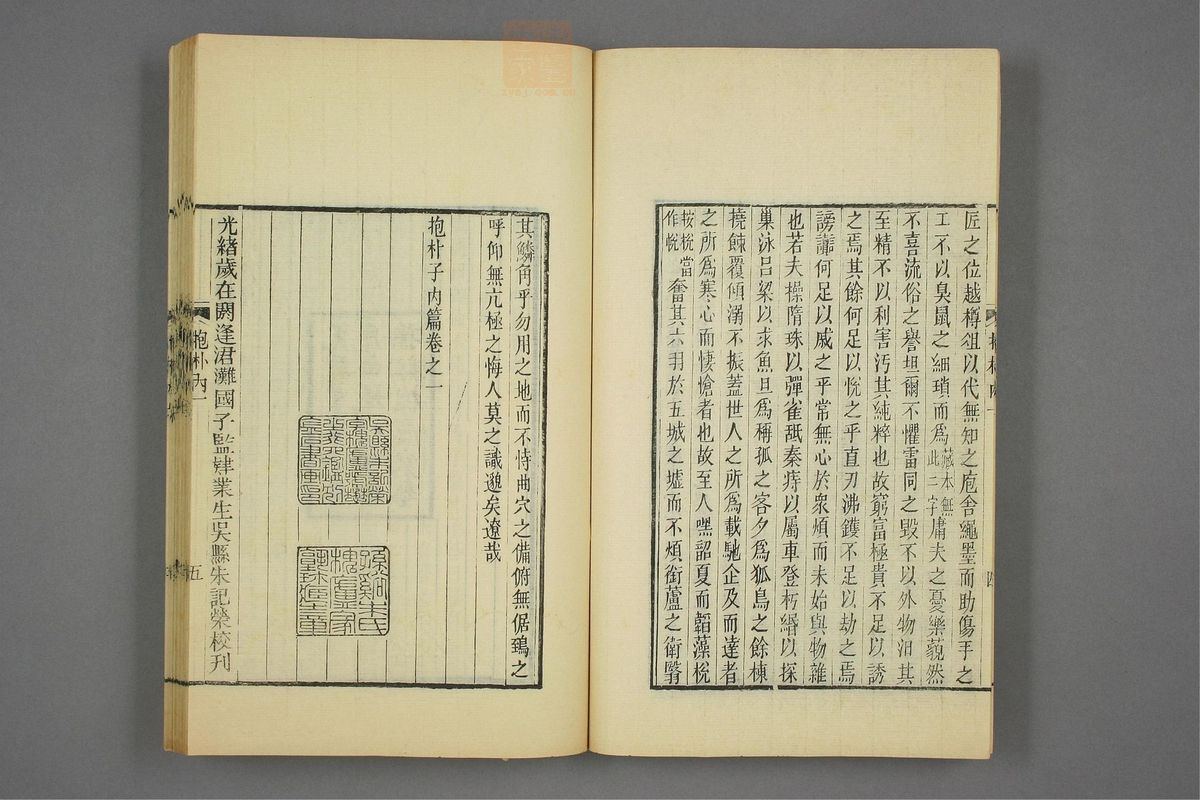 匠之位越樽俎以代無知之庖舍繩墨而助傷手之
工不以臭鼠之細瑣而爲藏本無此二字庸夫之憂樂藐然
不喜流俗之譽坦爾不懼雷同之毀不以外物汨其
至精不以利害汚其純粹也故窮富極貴不足以誘
之焉其餘何足以悅之乎直刃沸鑊不足以劫之焉
謗讟何足以戚之乎常無心於衆煩而未始與物雜
也若夫操隋珠以彈雀舐秦痔以屬車登朽緡以探
巢泳呂梁以求魚旦爲稱孤之客夕爲狐鳥之餘棟
撓餗覆傾溺不振蓋世人之所爲載馳企及而達者
之所爲寒心而悽愴者也故至人嘿韶夏而韜藻梲
按梲當作帨奮其六羽於五城之墟而不煩銜蘆之衛翳
抱朴內一
四
其鱗角乎勿用之地而不恃曲穴之備俯無倨鵄之
呼仰無亢極之悔人莫之識邈矣遼哉
抱朴子內篇卷之一
孫谿朱氏槐廬家塾珠還重
光緒歲在閼逢涒灘國子監肄業生吳縣朱記榮校刊
抱朴內一
五